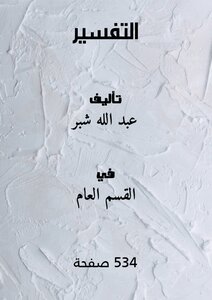 التفسير
تأليف
عبد الله شبر
في
القسم العام
534 صفحة